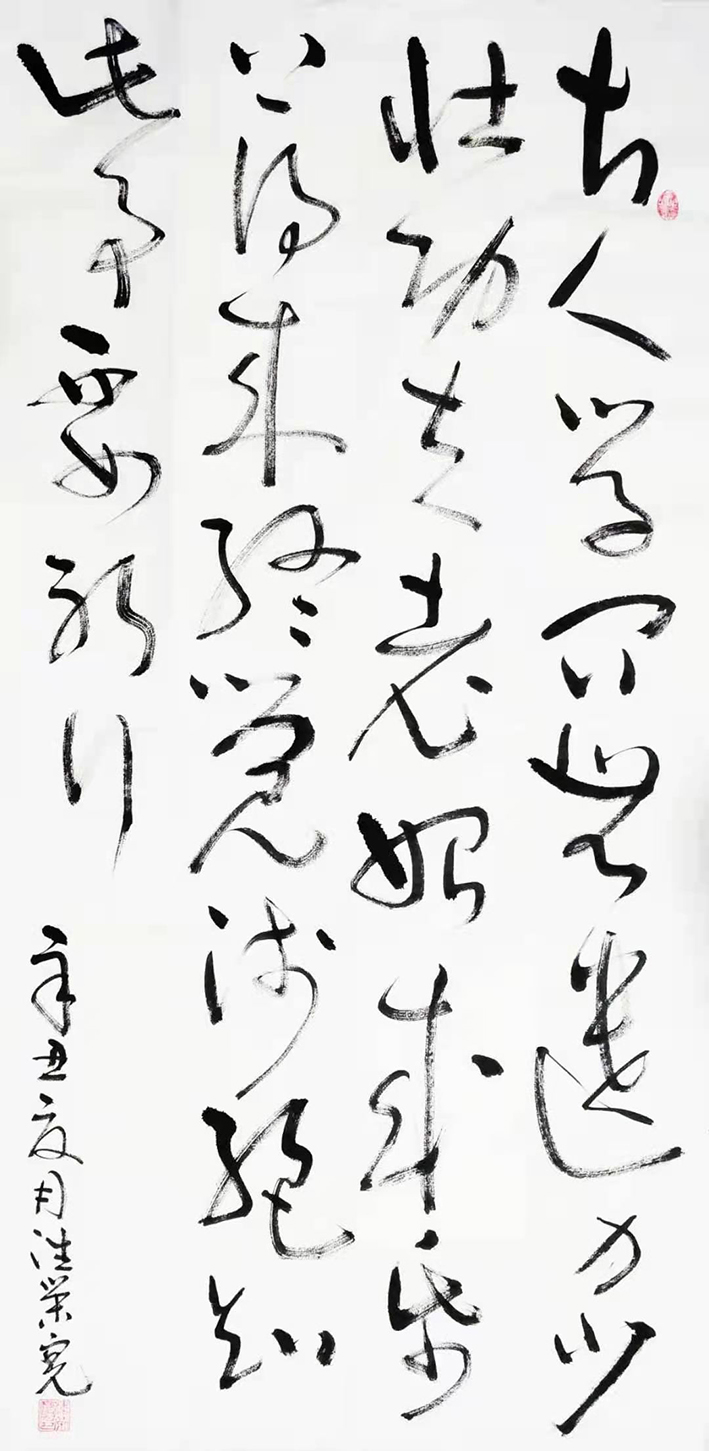 古人学问無遗力少
壮功夫老始成帋
上得来终觉浅绝知
此事要躬行
辛丑夏月